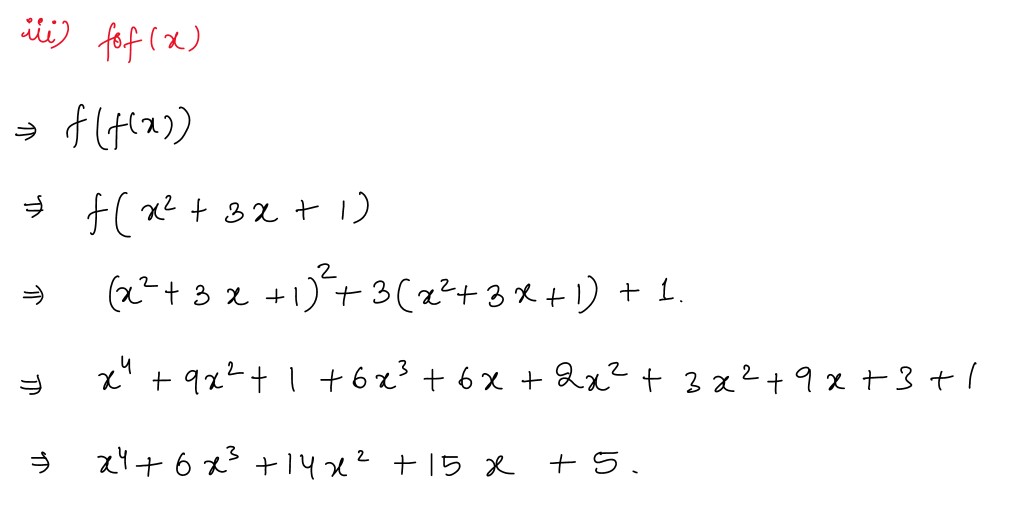 iii) fof(x)
⇒ f(f(x))
⇒ f(x² + 3x + 1)
⇒ (x² + 3x + 1)² + 3(x² + 3x + 1) + 1.
⇒ x⁴ + 9x² + 1 + 6x³ + 6x + 2x² + 3x² + 9x + 3 + 1
⇒ x⁴ + 6x³ + 14x² + 15x + 5.